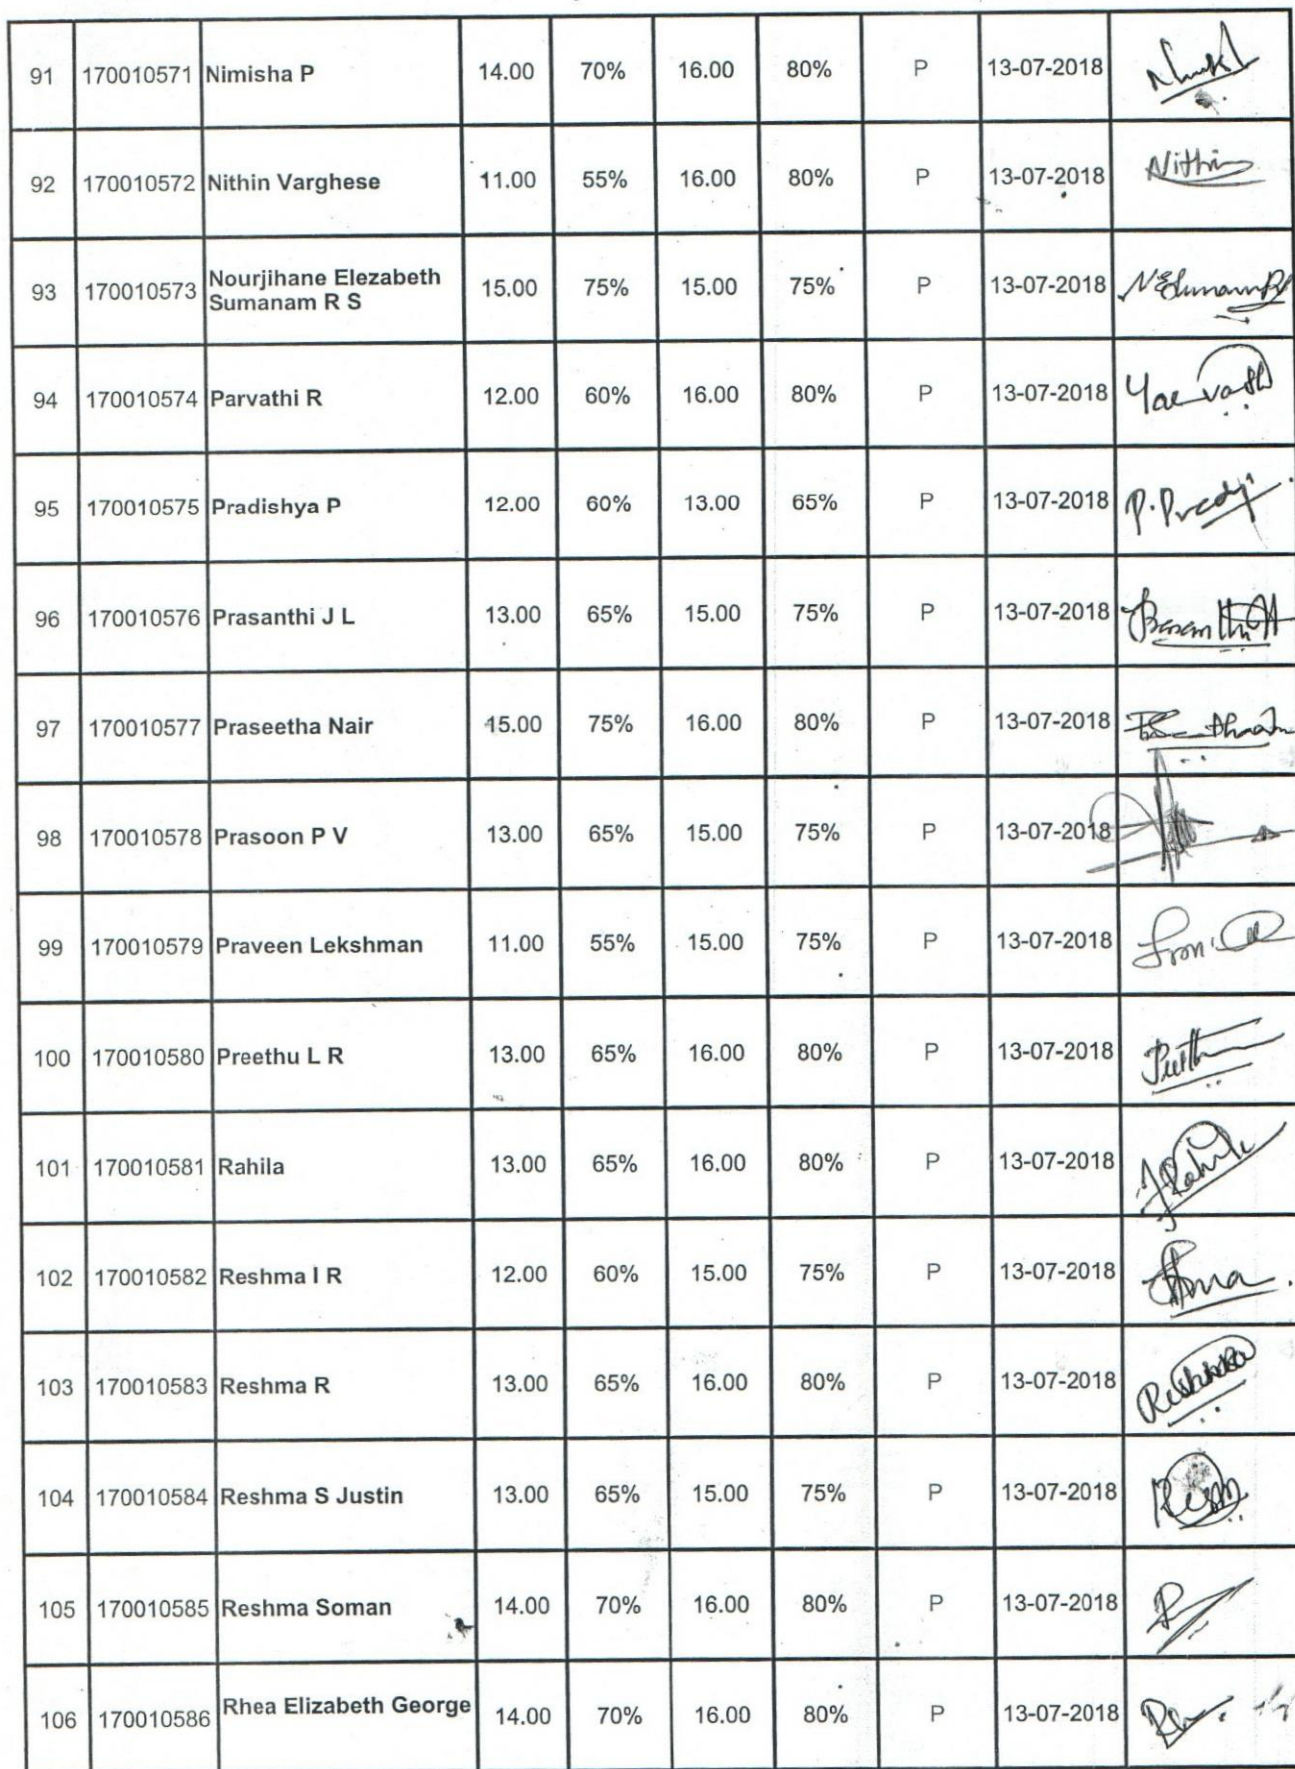 91 170010571 Nimisha P 14.00 70% 16.00 80% P 13-07-2018
92 170010572 Nithin Varghese 11.00 55% 16.00 80% P 13-07-2018 Nithin
93 170010573 Nourjihane Elezabeth
Sumanam R S 15.00 75% 15.00 75% P 13-07-2018
94 170010574 Parvathi R 12.00 60% 16.00 80% P 13-07-2018
95 170010575 Pradishya P 12.00 60% 13.00 65% P 13-07-2018
96 170010576 Prasanthi J L 13.00 65% 15.00 75% P 13-07-2018
97 170010577 Praseetha Nair 15.00 75% 16.00 80% P 13-07-2018
98 170010578 Prasoon P V 13.00 65% 15.00 75% P 13-07-2018
99 170010579 Praveen Lekshman 11.00 55% 15.00 75% P 13-07-2018
100 170010580 Preethu L R 13.00 65% 16.00 80% P 13-07-2018
101 170010581 Rahila 13.00 65% 16.00 80% P 13-07-2018
102 170010582 Reshma I R 12.00 60% 15.00 75% P 13-07-2018
103 170010583 Reshma R 13.00 65% 16.00 80% P 13-07-2018
104 170010584 Reshma S Justin 13.00 65% 15.00 75% P 13-07-2018
105 170010585 Reshma Soman 14.00 70% 16.00 80% P 13-07-2018
106 170010586 Rhea Elizabeth George 14.00 70% 16.00 80% P 13-07-2018